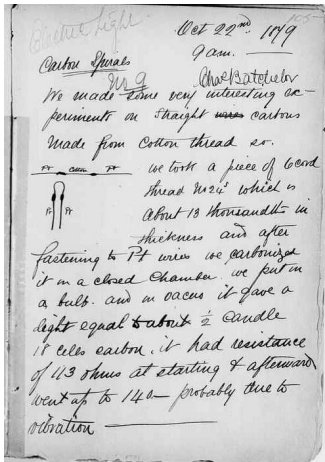 Electric Light
Oct 22nd 1879
9 am.
Carbon Spirals
No 9
Chas Batchelor
We made some very interesting ex-
periments on straight wires carbons
made from Cotton thread so.
Pt Cotton Pt
we took a piece of 6 cord
thread No 24s which is
Pt Pt
about 13 thousandths in
thickness and after
fastening to Pt wires we carbonized
it in a closed chamber. we put in
a bulb. and in vacuo it gave a
light equal to about ½ candle
18 cells carbon. it had resistance
of 113 ohms at starting & afterward
went up to 140 — probably due to
vibration